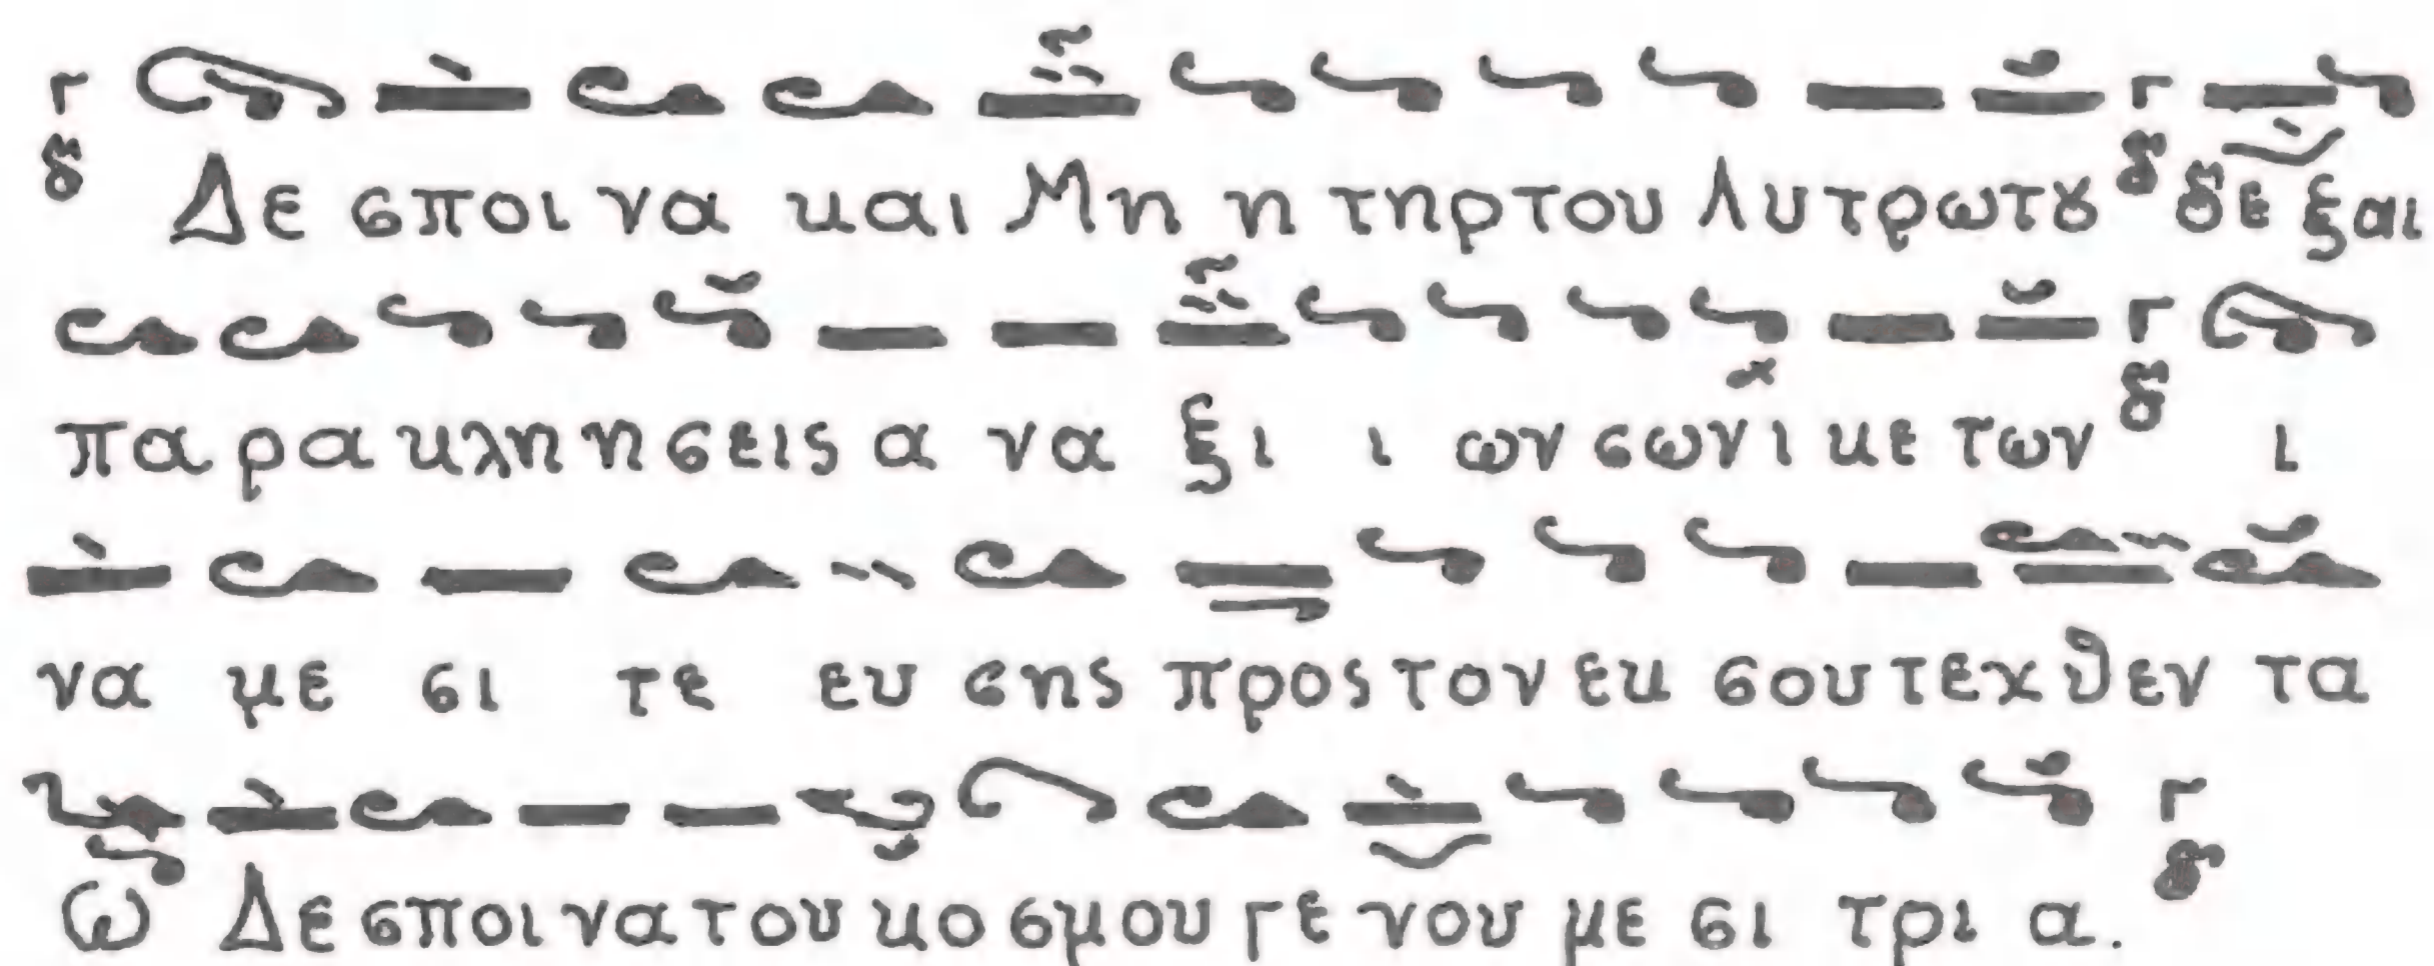 Δε σποι να και Μη η τηρ του Λυ τρω τȣ δε ξαι
πα ρα κλη η σεις α να ξι ι ων σων ι κε των ι
να με σι τε ευ σης προς τον εκ σου τεχ θεν τα
ω Δε σποι να του κο σμου γε νου με σι τρι α.